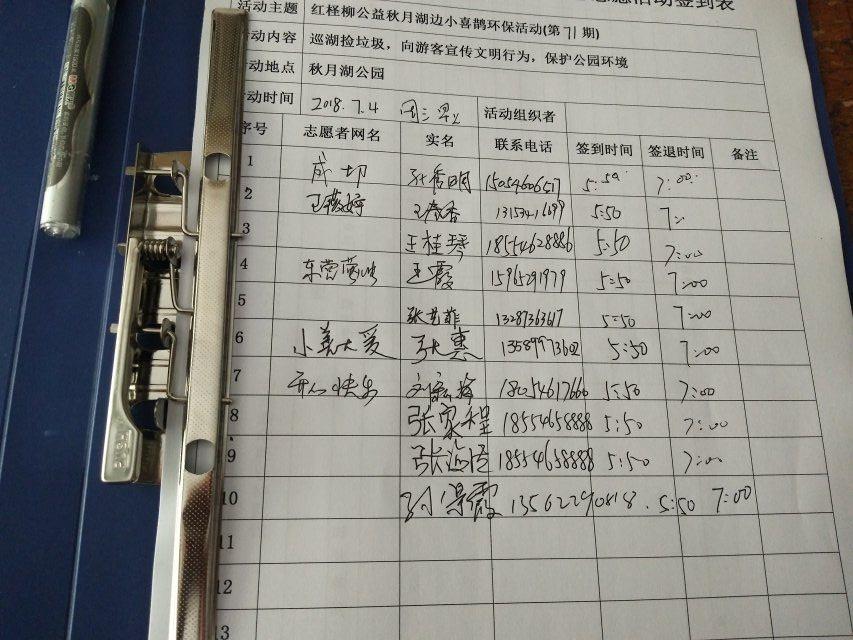 活动签到表
活动主题 红柽柳公益秋月湖边小喜鹊环保活动(第71期)
活动内容 巡湖捡垃圾，向游客宣传文明行为，保护公园环境
活动地点 秋月湖公园
活动时间 2018.7.4 周三早上 活动组织者
序号 志愿者网名 实名 联系电话 签到时间 签退时间 备注
1 5:50 7:00
2 王春香 5:50 7:
3 王桂琴 18554628886 5:50 7:00
4 王霞 5:50 7:00
5 13287363617 5:50 7:00
6 小美大爱 张惠 13589973602 5:50 7:00
7 开心快乐 18054617666 5:50 7:00
8 张家程 18554658888 5:50 7:00
9 18554658888 5:50 7:00
10 13562290818. 5:50 7:00
11
12
13